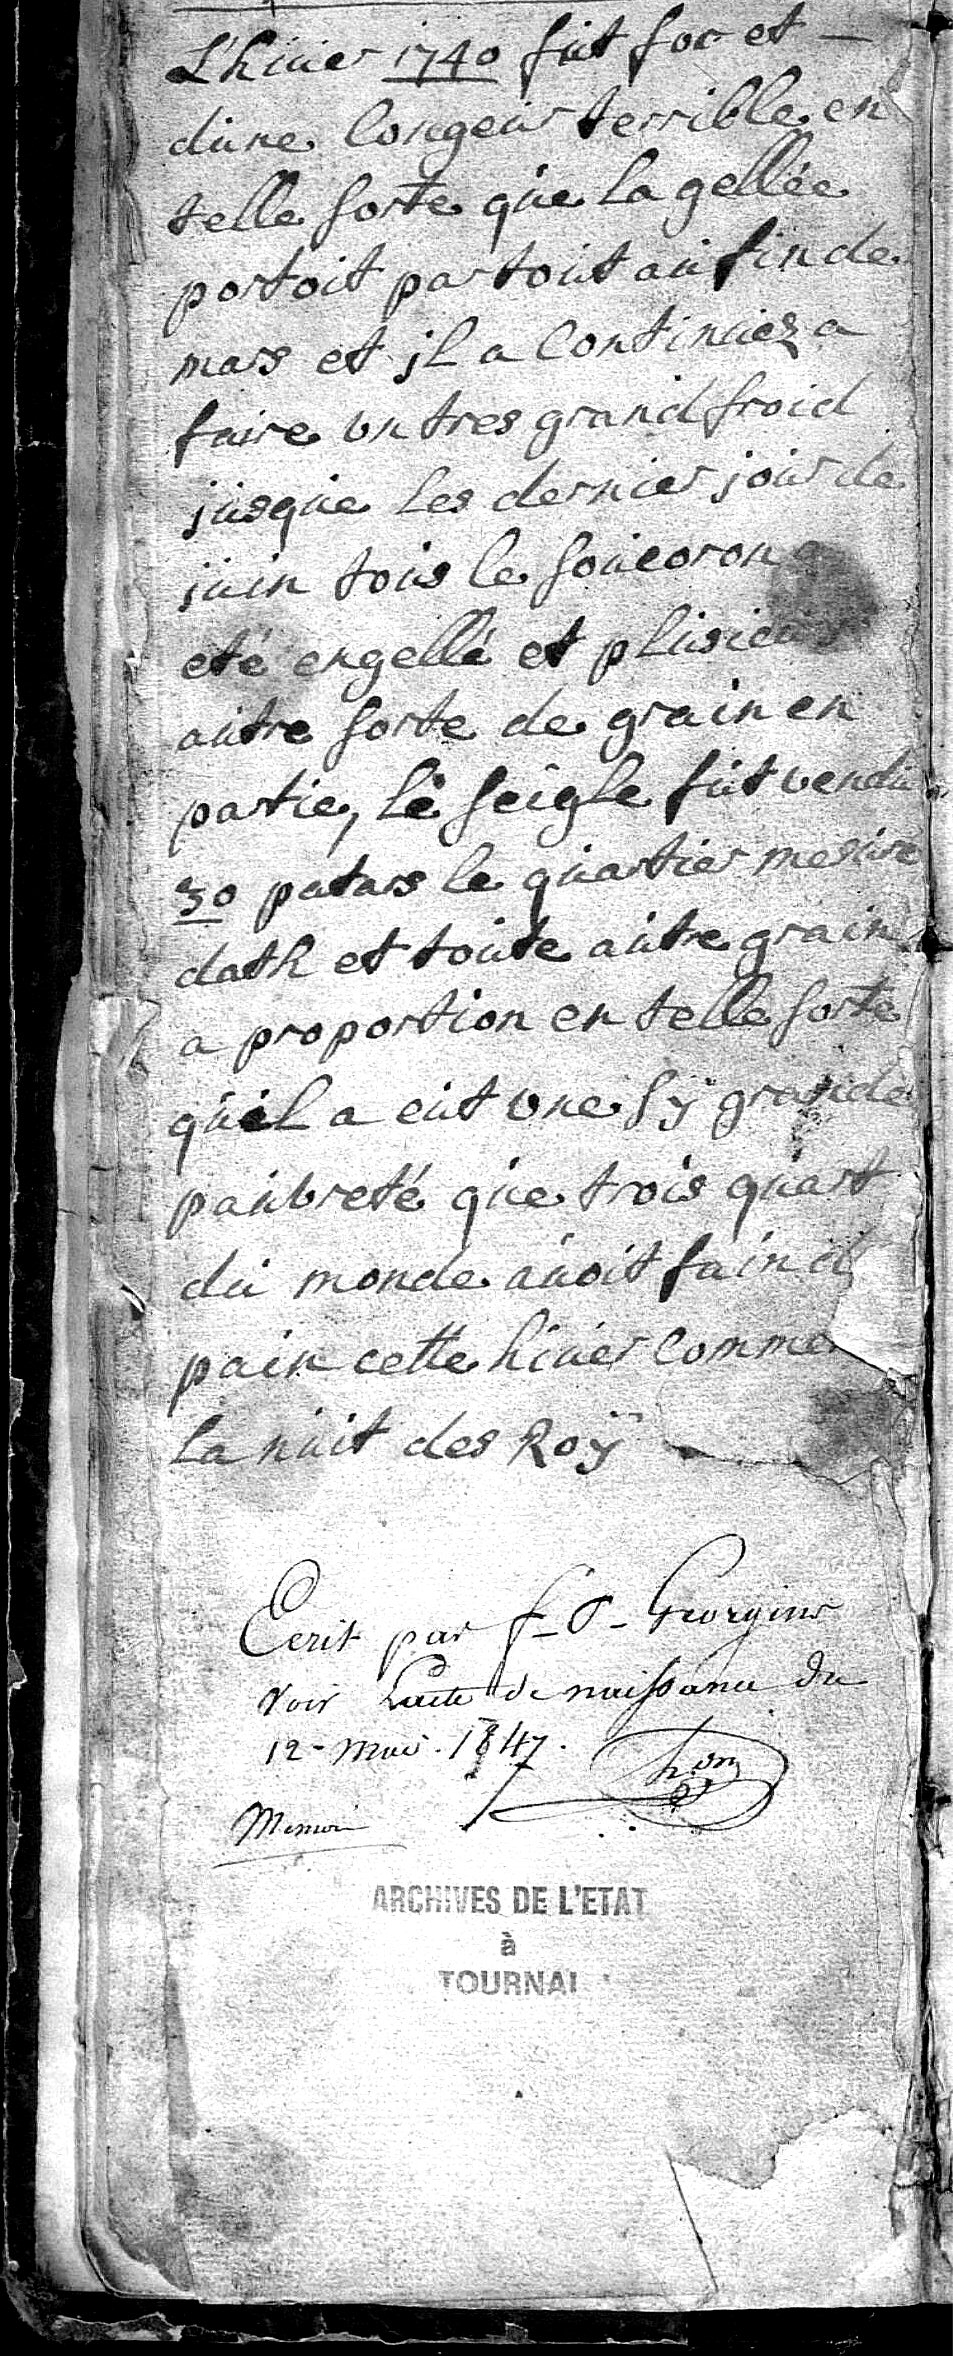 L'hiuer 1740 fut for et —
dune longeur terrible en
telle sorte que la gellée
portoit partout au fin de
mars et jl a continuez a
faire vn tres grand froid
jusque les dernier jour de
juin tous le soucoron
eté engellé et plusieurs
autre sorte de grain en
partie, le seigle fut vendu
30 patars le quartier mesure
dath et toute autre grain
a proportion en telle sorte
quil a eut vne sy grande
paubreté que trois quart
du monde auoit fain d
pain cette hiuer comme
la nuit des Roÿ
Ecrit par f-P- Georgins
voir L'acte de naissance du
12 - Mai . 1747 .
Memoir
ARCHIVES DE L'ETAT
à
TOURNAI